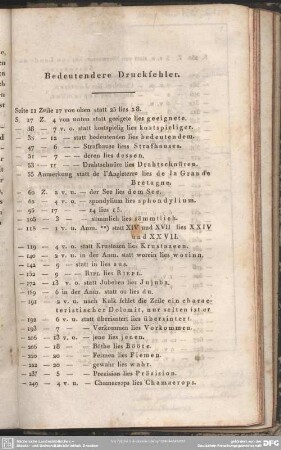 Bedeutendere Druckfehler.
Seite 11 Zeile 17 von oben statt 25 lies 28.
S. 17 Z. 4 von unten statt geeigete lies geeignete.
— 38 — 7 v. o. statt kostspielig lies kostspieliger.
— 30 — 12 — statt bedeutenden lies bedeutendem.
— 47 — 6 — Strafhause lies Strafhauses.
— 51 — 7 — deren lies dessen.
— 53 — 11 — Drahtschnüre lies Drahtschnüren.
— 55 Anmerkung statt de l'Angleterre lies de la Grande
Bretagne.
— 60 Z. 2 v. u. — der See lies dem See.
— 60 — 4 v. o. — spondylium lies sphondylium.
— 93 — 17 — 14 lies 15.
— 106 — 3 — nämlich lies sämmtlich.
— 118 — 1 v. u. Anm. **) statt XIV und XVII lies XXIV
und XXVII.
— 119 — 4 v. o. statt Krustnien lies Krustozens.
— 140 — 2 v. u. in der Anm. statt worein lies worinn.
— 142 — 9 — statt in lies aus.
— 152 — 9 — lies Biret.
— 172 — 13 v. o. statt Jubeben lies Jujubä.
— 189 — 6 in der Anm. statt ou lies du.
— 191 — 2 v. u. nach Kalk fehlet die Zeile ein charac-
teristischer Dolomit, nur selten ist er
— 192 — 6 v. u. statt übersintert lies übersintert.
— 193 — 7 — Verkommen lies Vorkommen.
— 206 — 13 v. o. — jene lies jenen.
— 206 — 18 — Böthe lies Boote.
— 220 — 20 — Femen lies Fiemen.
— 222 — 20 — gewahr lies wahr.
— 237 — 5 — Precision lies Präcision.
— 249 — 4 v. u. — Chamaerops lies Chamaerops.